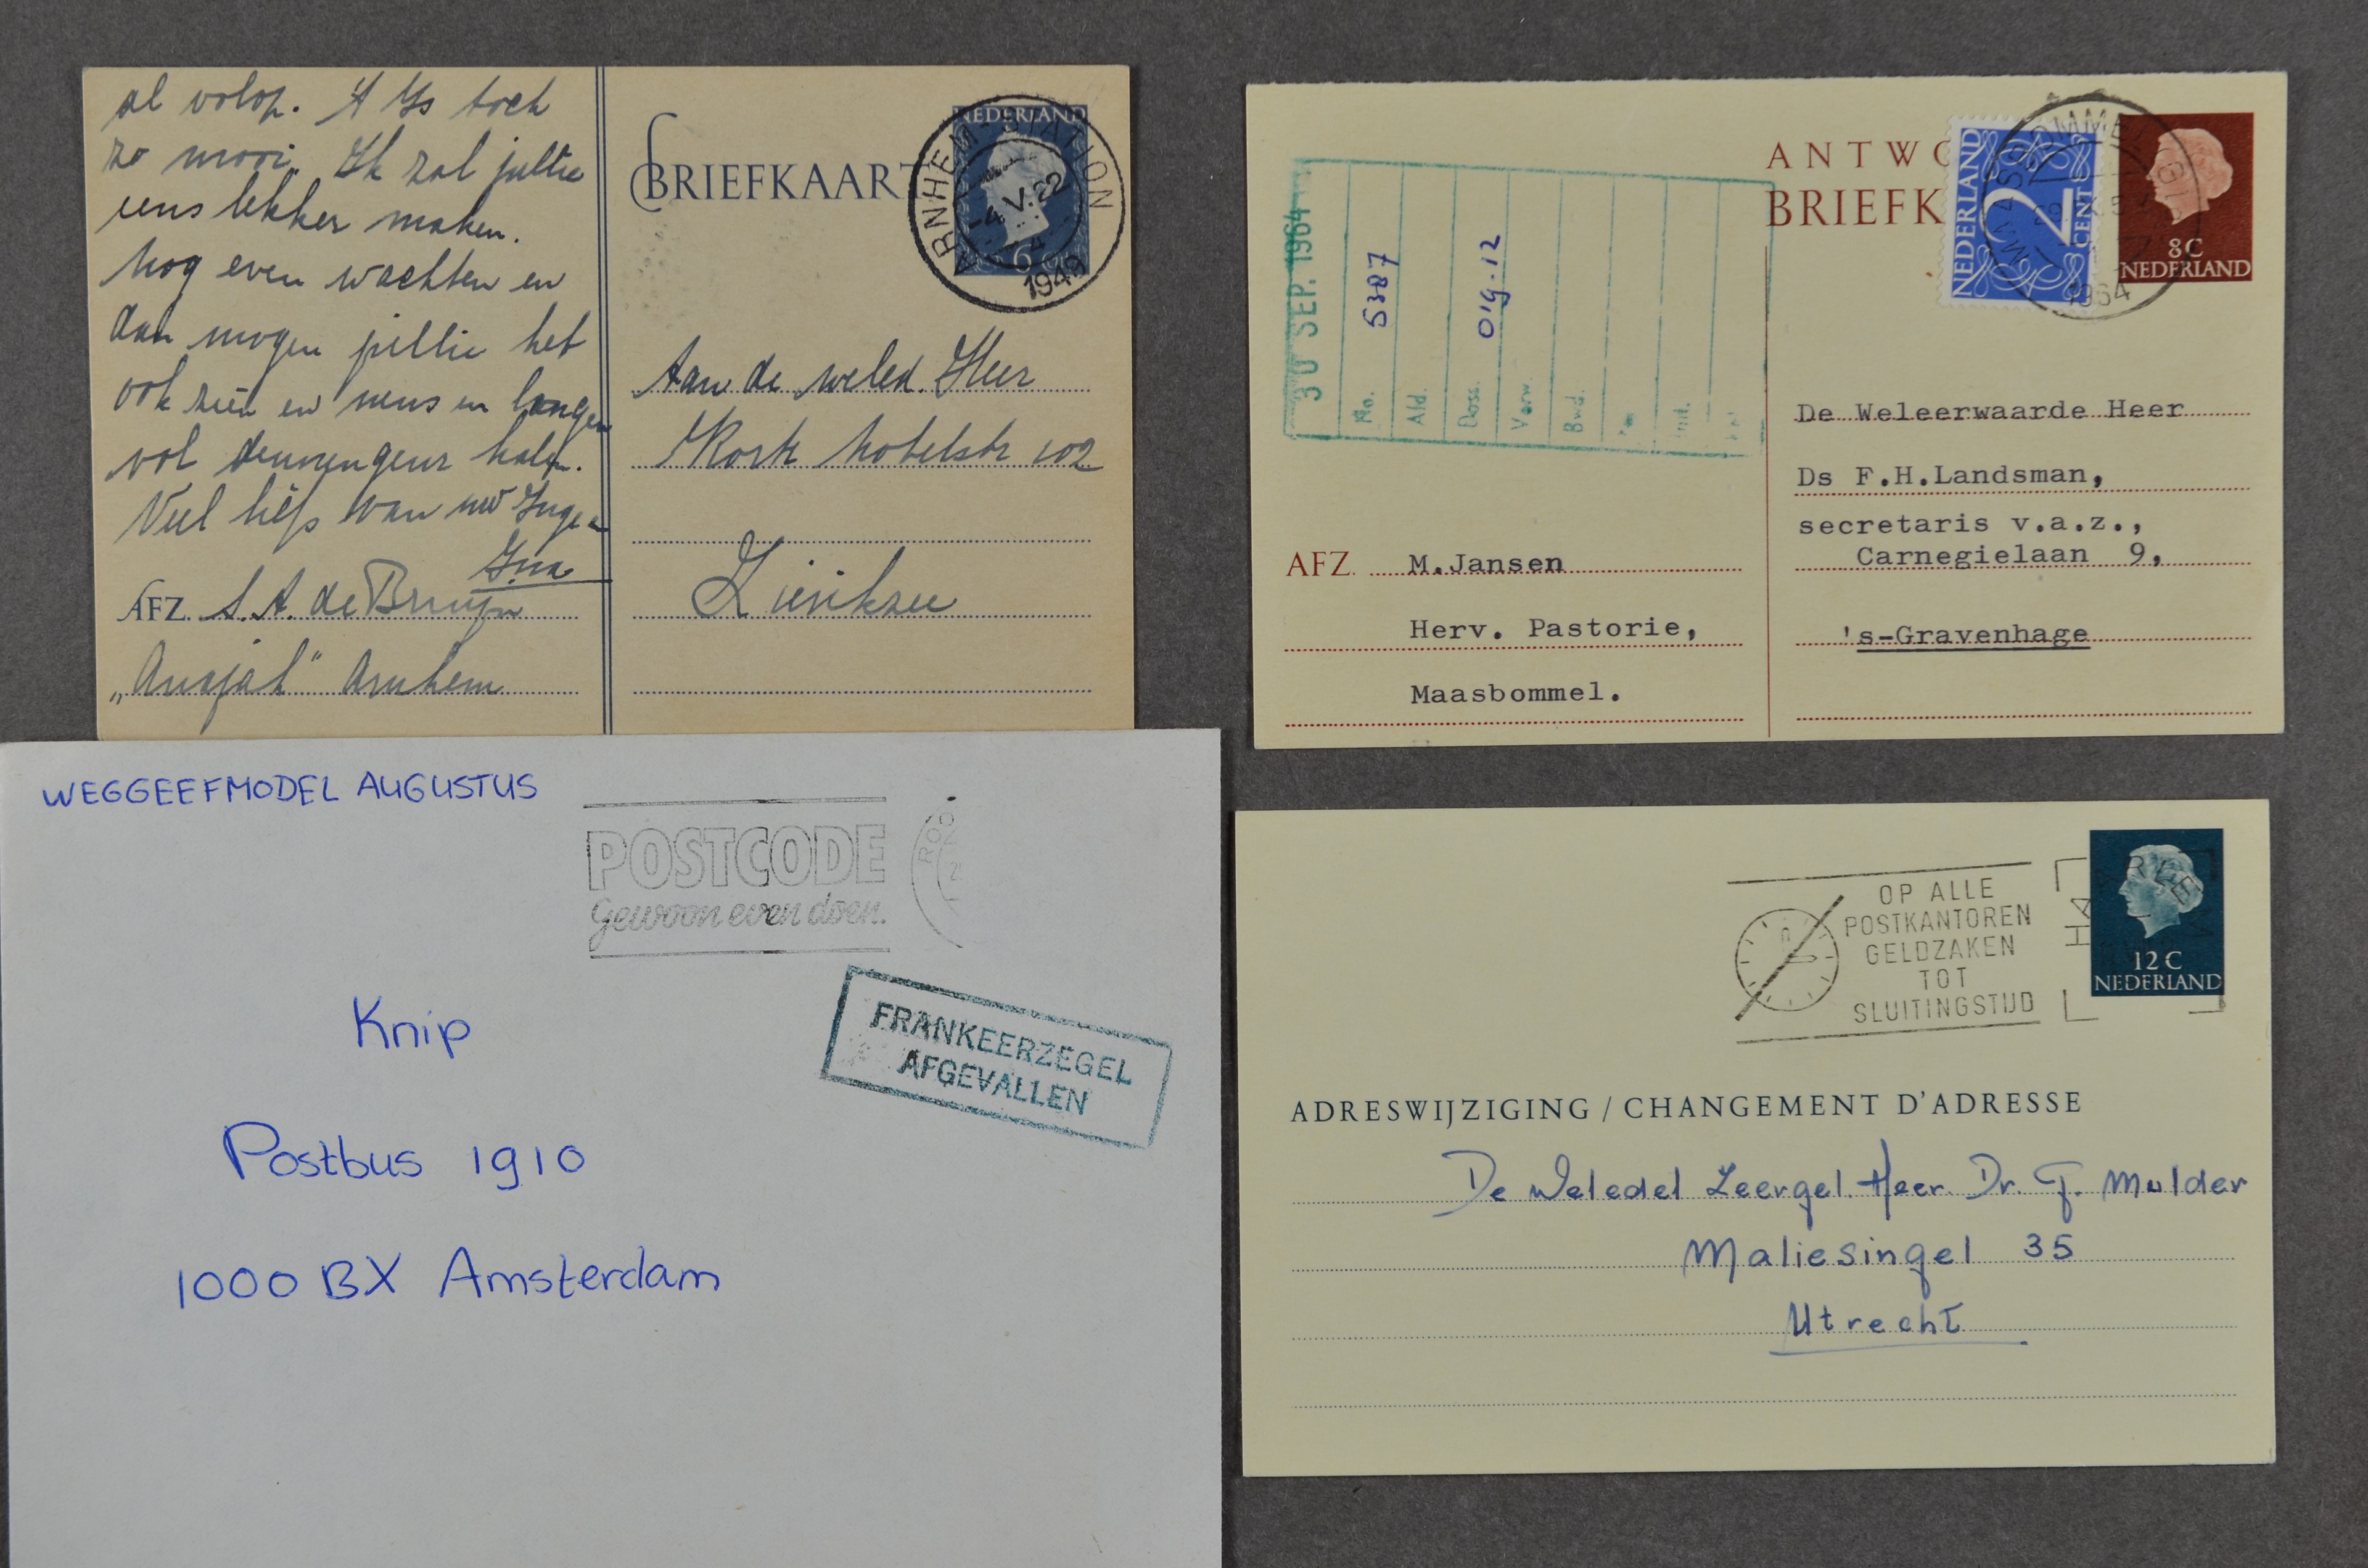 al volop. 't Is toch
zo mooi. Ik zal jullie
eens lekker maken.
Nog even wachten en
dan mogen jullie het
ook zien en neus en longen
vol dennengeur halen.
Veel liefs van uw
Ina
AFZ. S. A. de Bruijn
Arnhem
BRIEFKAART
NEDERLAND
6
ARNHEM-STATION
-4.V.22
1949
Aan de weled. Heer
102
Zierikzee
ANTWO
BRIEFK
NEDERLAND
2
CENT
8C
NEDERLAND
1964
30 SEP. 1964
No. 5387
Afd.
Doss. 019.12
Verw.
Bwd.
De Weleerwaarde Heer
Ds F.H.Landsman,
secretaris v.a.z.,
Carnegielaan 9,
's-Gravenhage
AFZ. M.Jansen
Herv. Pastorie,
Maasbommel.
WEGGEEFMODEL AUGUSTUS
POSTCODE
gewoon even doen.
FRANKEERZEGEL
AFGEVALLEN
Knip
Postbus 1910
1000 BX Amsterdam
OP ALLE
POSTKANTOREN
GELDZAKEN
TOT
SLUITINGSTIJD
HAARLEM
12 C
NEDERLAND
ADRESWIJZIGING / CHANGEMENT D'ADRESSE
De Weledel Zeergel. Heer Dr. T. Mulder
Maliesingel 35
Utrecht